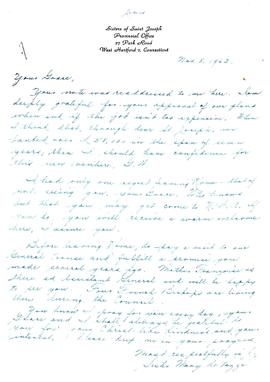 Sisters of Saint Joseph
Provincial Office
27 Park Road
West Hartford 7, Connecticut
Nov. 8, 1962
Your Grace,
Your note was readdressed to me here. I am
deeply grateful for your approval of our plans
when and if the job isn't too expensive. When
I think that, through dear St. Joseph, we
banked over in the span of seven
years, then I should have confidence for
this new number.
I had only one regret leaving Rome - that of
not seeing you, your Grace. Who knows
but that you may yet come to U.S.A. If
you do you will receive a warm welcome
here, I assure you.
Before leaving Rome, do pay a visit to our
General House and fulfill a promise you
made several years ago. Mother Françoise is
there as Assistant General and will be happy
to see you. Four French Bishops are living
there during the Council.
You know I pray for you every day, your
Grace and I shall always be grateful to
you for your Christ-like kindness and your
interest. Please keep me in your prayers.
Most respectfully in
Sister Mary